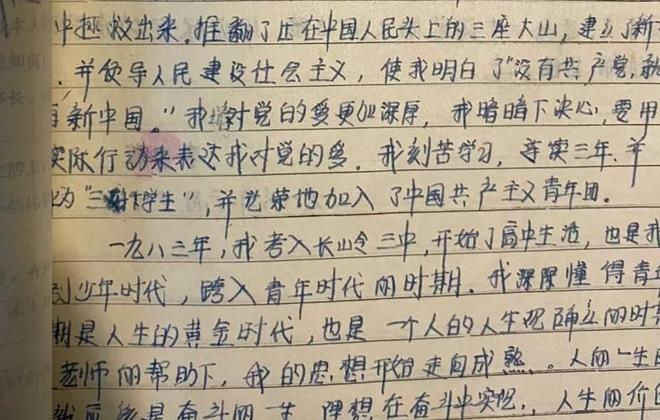 中拯救出来。推翻了压在中国人民头上的三座大山，建立了新
，并领导人民建设社会主义，使我明白了“没有共产党，就
有新中国。”我对党的爱更加深厚，我暗暗下决心，要用
实际行动来表达我对党的爱。我刻苦学习，等实三年，并
为“三好学生”，并光荣地加入了中国共产主义青年团。
一九八三年，我考入长岭三中，开始了高中生活，也是我
别少年时代，跨入青年时代的时期。我深深懂得青
期是人生的黄金时代，也是一个人的人生观确立的时
老师的帮助下，我的思想开始走向成熟。人的一生
就应该是奋斗的一生，理想在奋斗中实现，人生的价